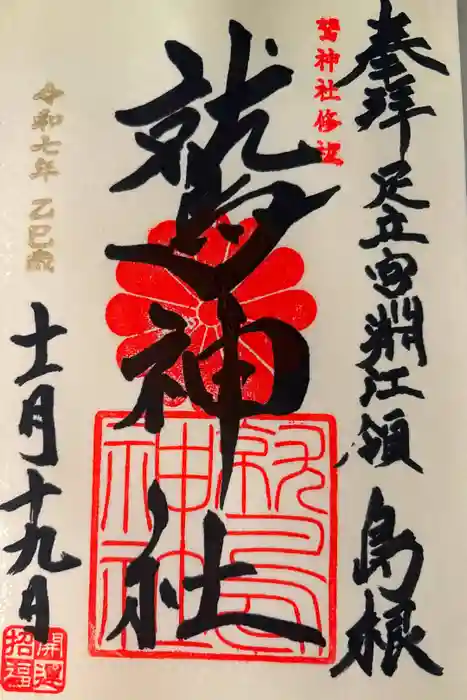 奉拝 足立字淵江領 島根
鷲神社修辺
鷲神社
鷲神社
令和七年 乙巳歳
十一月十九日
開運招福